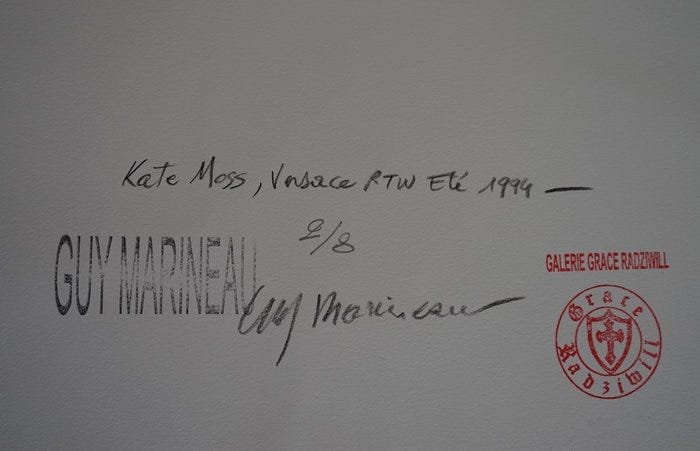 Kate Moss, Versace RTW Eté 1994 —
2/8
GUY MARINEAU
Guy Marineau
GALERIE GRACE RADZIWILL
Grace
Radziwill